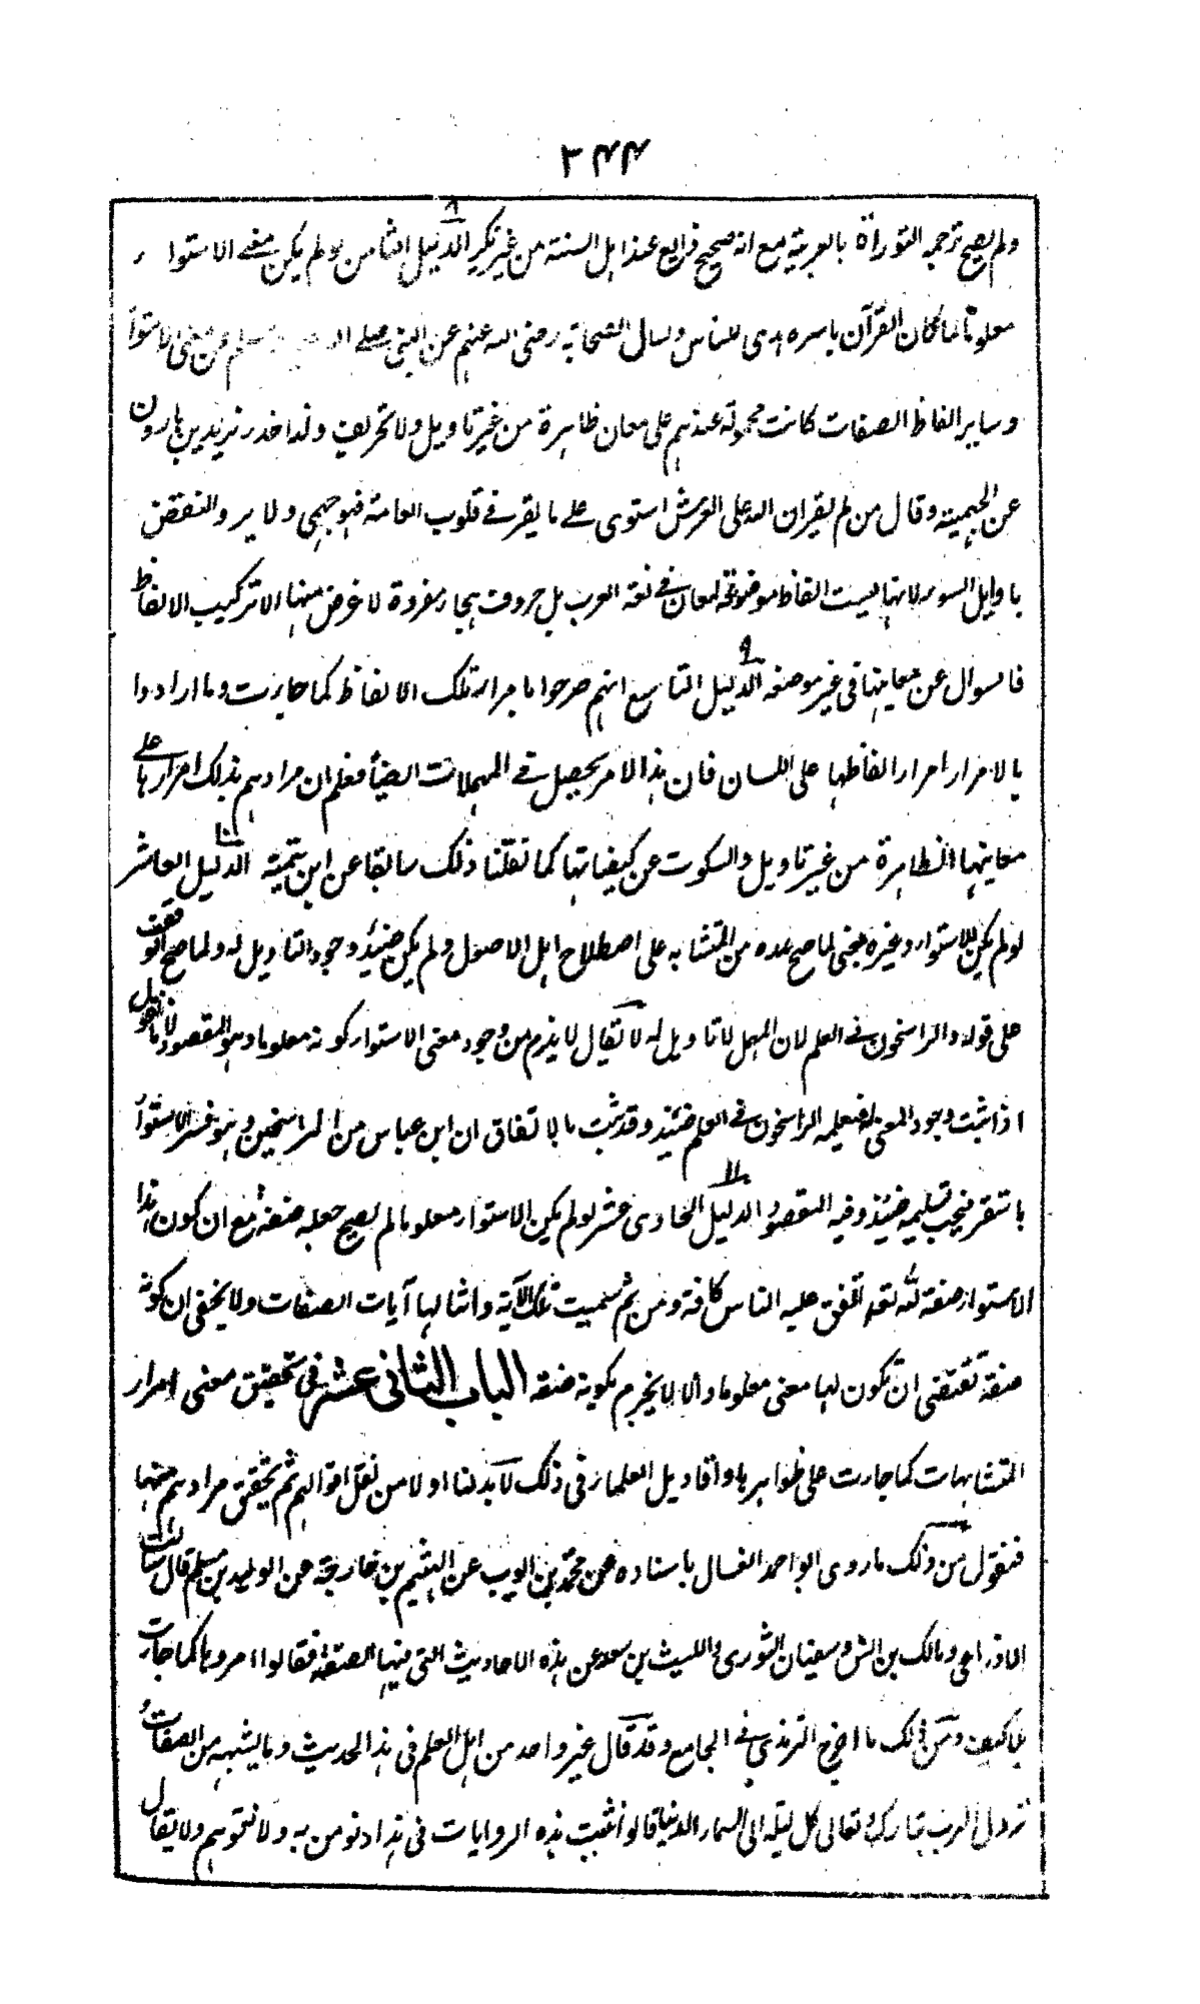 ۲۴۴
ولم يصح ترجمة التوراة بالعربية مع انه صحيح عند اهل السنة من غير نكير الدليل الثامن لو لم يكن معنى الاستواء
معلوما لما كان القرآن باسره هدى للناس ولسال الصحابة رضى الله عنهم عن النبى صلى الله وسلم عن معنى الاستواء
وساير الفاظ الصفات كانت محمولة عندهم على معان ظاهرة من غير تاويل ولا تحريف ولذا حذر يزيد بن هارون
عن الجهمية وقال من لم يقر ان الله على العرش استوى على ما يقر فى قلوب العامة فهو جهمى ولا يرد النقض
باوايل السور لانها ليست الفاظ موضوعة لمعان فى لغة العرب بل حروف هجاء مفردة لا غرض منها الا تركيب الالفاظ
فالسوال عن معاينها فى غير موضعه ۹ الدليل التاسع انهم صرحوا بامرار تلك الالفاظ كما جاءت وما ارادوا
بالامرار امرار الفاظها على اللسان فان هذا الامر يحصل فى المهملات ايضأ فعلم ان مرادهم بذلك امرارها على
معاينها الظاهرة من غير تاويل والسكوت عن كيفياتها كما نقلنا ذلك سابقا عن ابن تيمية ۱۰ الدليل العاشر
لو لم يكن للاستواء وغيره معنى لما صح عده من المتشابه على اصطلاح اهل الاصول ولم يكن حينئذ وجود التاويل له ولما صح الوقف
على قوله والراسخون فى العلم لان المهمل لا تاويل له لا يقال لا يلزم من وجود معنى الاستواء كونه معلوما وهو المقصود لانا نقول
اذا ثبت وجود المعنى له فيعلمه الراسخون فى العلم حينئذ وقد ثبت بالاتفاق ان ابن عباس من الراسخين وهو فسر الاستوأ
باستقر فيجب تسليمه حينئذ وفيه المقصود ۱۱ الدليل الحادى عشر لو لم يكن الاستواء معلوما لم يصح جعله صفة مع ان كون هذا
الاستواء صفة لله تعالى اتفق عليه الناس كافة ومن ثم سميت تلك الآية وامثالها آيات الصفات ولا يخفى ان كونه
صفة تقتضى ان تكون لها معنى معلوما والا لا يجزم بكونه صفة الباب الثانى عشر فى تحقيق معنى امرار
المتشابهات كما جاءت على ظواهرها واقاويل العلماء فى ذلك لا بد لنا اولا من نقل اقوالهم ثم تحقق مرادهم منها
فنقول من ذلك ما روى ابو احمد العسال باسناده عن محمد بن ايوب عن الهيثم بن خارجة عن الوليد بن مسلم قال سالت
الاوزاعى ومالك بن انس وسفيان الثورى والليث بن سعد عن هذه الاحاديث التى فيها الصفة فقالوا امروها كما جاءت
بلا كيف ومن ذلك ما اخرج الترمذى فى الجامع وقد قال غير واحد من اهل العلم فى هذا الحديث وما يشبهه من الصفات
نزول الرب تبارك وتعالى كل ليلة الى السماء الدنيا قالوا نثبت هذه الروايات فى هذا ونومن به ولا نتوهم ولا يقال